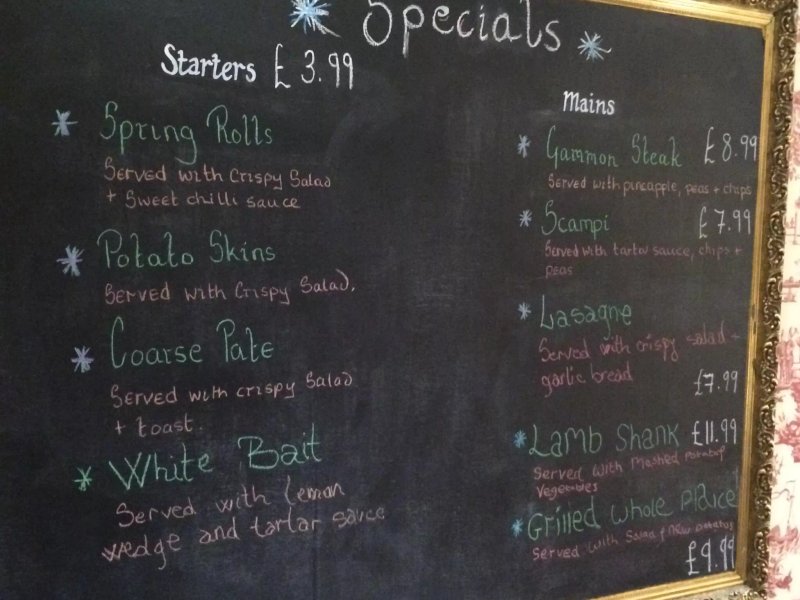 Specials
Starters £3.99
Spring Rolls
Served with Crispy Salad
+ Sweet chilli sauce
Potato Skins
Served with Crispy Salad.
Coarse Pate
Served with crispy Salad
+ toast.
White Bait
Served with lemon
wedge and tartar sauce
Mains
Gammon Steak £8.99
Served with pineapple, peas + chips
Scampi £7.99
Served with tartar sauce, chips +
peas
Lasagne
Served with crispy salad +
garlic bread
£7.99
Lamb Shank £11.99
Served with Mashed Potato
Vegetables
Grilled whole Plaice
Served with Salad + new potatoes
£9.99